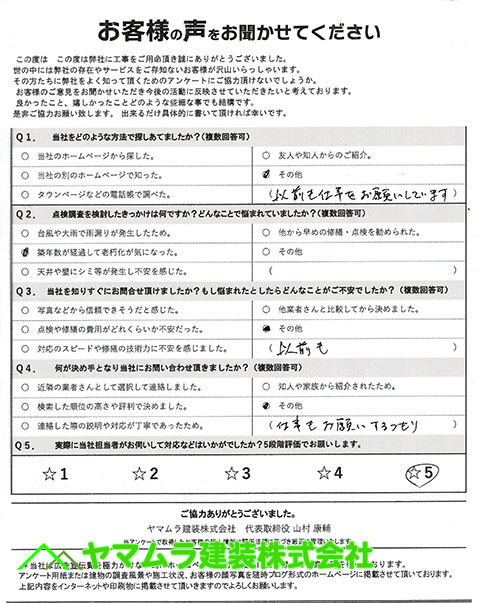 お客様の声をお聞かせてください
この度は この度は弊社に工事をご用命頂き誠にありがとうございました。
世の中には弊社の存在やサービスをご存知ないお客様が沢山いらっしゃいます。
その方たちに弊社をよく知って頂くためのアンケートにご協力頂けないでしょうか。
お客様のご意見をお聞かせいただき今後の活動に反映させていただきたいと考えております。
良かったこと、嬉しかったことどのような些細な事でも結構です。
是非ご協力お願い致します。 出来るだけ具体的に書いて頂ければ幸いです。
Q1. 当社をどのような方法で探しあてましたか?(複数回答可)
○ 当社のホームページから探した。 ○ 友人や知人からのご紹介。
○ 当社の別のホームページで知った。 ○ その他
○ タウンページなどの電話帳で調べた。 (以前も仕事をお願いしています)
Q2. 点検調査を検討したきっかけは何ですか?どんなことで悩まれていましたか?(複数回答可)
○ 台風や大雨で雨漏りが発生したため。 ○ 他から早めの修繕・点検を勧められた。
○ 築年数が経過して老朽化が気になった。 ○ その他
○ 天井や壁にシミ等が発生し不安を感じた。 ( )
Q3. 当社を知りすぐにお問合せ頂けましたか?もし悩まれたとしたらどんなことがご不安でしたか?(複数回答可)
○ 写真などから信頼できそうだと感じた。 ○ 他業者さんと比較してから決めました。
○ 点検や修繕の費用がどれくらいか不安だった。 ○ その他
○ 対応のスピードや修繕の技術力に不安を感じました。 (以前も )
Q4. 何が決め手となり当社にお問い合わせ頂きましたか?(複数回答可)
○ 近隣の業者さんとして選択して連絡しました。 ○ 知人や家族から紹介されたため。
○ 検索した順位の高さや評判で決めました。 ○ その他
○ 連絡した際の説明や対応が丁寧であったため。 (仕事をお願いするつもり )
Q5. 実際に当社担当者がお伺いして対応などはいかがでしたか?5段階評価でお願いします。
☆1 ☆2 ☆3 ☆4 ☆5
ご協力ありがとうございました。
ヤマムラ建装株式会社 代表取締役 山村 康輔
ヤマムラ建装株式会社
アンケート用紙または建物の調査風景や施工状況、お客様の顔写真を随時ブログ形式のホームページに掲載させて頂いております。
上記内容をインターネットや印刷物に掲載させて頂いていますのでよろしくお願いします。